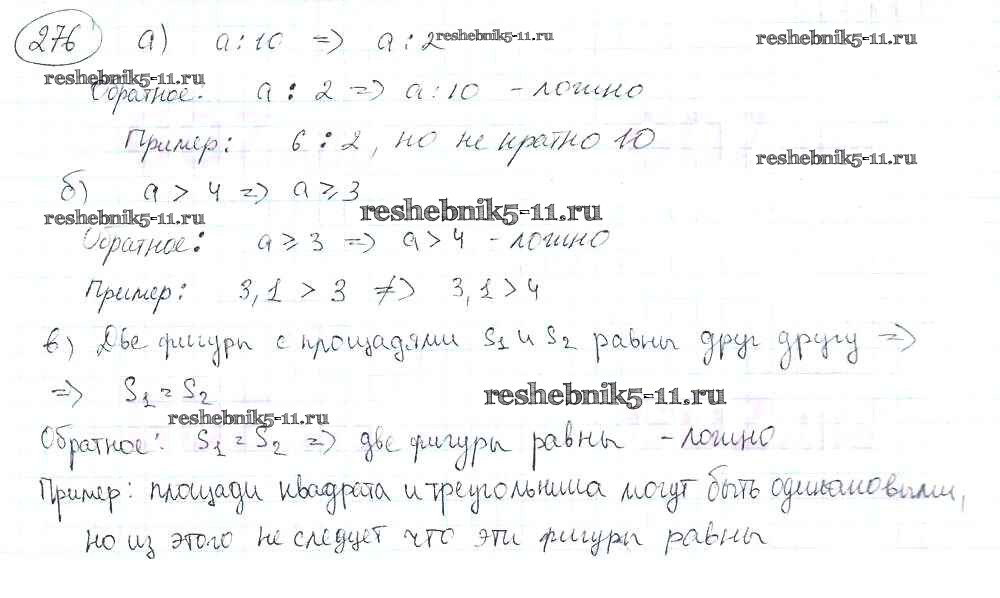 276 а) a : 10 => a : 2 reshebnik5-11.ru reshebnik5-11.ru
reshebnik5-11.ru
Обратное: a : 2 => a : 10 - ложно
Пример: 6 : 2, но не кратно 10
reshebnik5-11.ru
б) a > 4 => a ⩾ 3
reshebnik5-11.ru reshebnik5-11.ru
Обратное: a ⩾ 3 => a > 4 - ложно
Пример: 3,1 > 3 ≠> 3,1 > 4
в) Две фигуры с площадями S1 и S2 равны друг другу =>
=> S1 = S2 reshebnik5-11.ru
reshebnik5-11.ru
Обратное: S1 = S2 => две фигуры равны - ложно
Пример: площади квадрата и треугольника могут быть одинаковыми,
но из этого не следует что эти фигуры равны